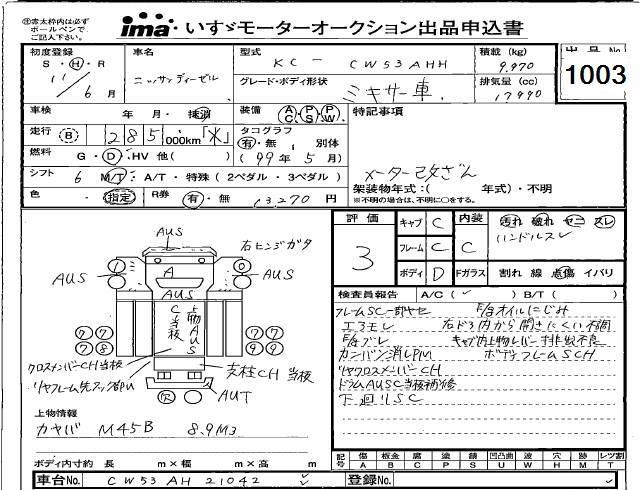 ㊟赤太枠内は必ず
ボールペンで
ご記入下さい。
ima いすゞモーターオークション出品申込書
初度登録 車名 型式 KC - CW53AHH 積載 (kg) 9,970 出品No.
S・H・R 11/6月 ニッサンディーゼル グレード・ボディ形状 ミキサー車 排気量 (cc) 17990 1003
車検 年 月・抹消 装備 AC・PS・PW 特記事項
走行 B 285000km「不」 タコグラフ 有・無 別体
燃料 G・D・HV 他( ) (99年5月) メーター改ざん
シフト 6 M/T・A/T・特殊(2ペダル・3ペダル) 架装物年式:( 年式)・不明
色 指定 R券 有・無 13270円 ※不明の場合は、不明に○をする。
評価 キャブ C 内装 汚れ 破れ ヤニ スレ
3 フレーム C C ハンドルスレ
ボディ D Fガラス 割れ 線 点傷 イバリ
AUS 右ヒンジガタ
AUS A AUS
AUS
C当板 上物AUS
クロスメンバーCH当板
支柱CH当板
AUT
検査員報告 A/C( ) B/T( )
フレームSC一部ヤセ E/gオイルにじみ
エアモレ 右ドア内から開きにくい不調
E/gブレ キャブ内上物レバー排出不良
カンバン消しPM ボディフレームSCH
リヤクロスメンバーCH
ドラムAUSC当板補修
下廻りSC
上物情報
カヤバ M45B 8.9M3
ボディ内寸約 長 m×幅 m×高 m
記号 傷A 板金B 腐C 塗P 錆S 凹凸曲U 波W 穴H 跡M レンズ割T
車台No. CW53AH 21042 登録No.